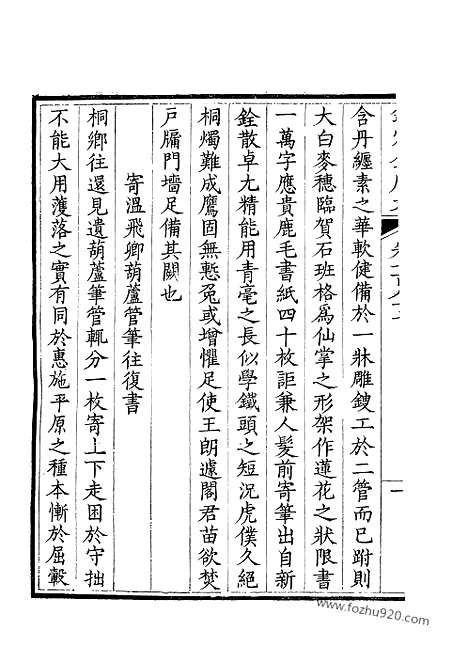 含丹纏素之華軟健備於一牀雕鎪工於二管而已跗則
大白麥穗臨賀石班格爲仙掌之形架作蓮花之狀限書
一萬字應貴鹿毛書紙四十枚詎兼人髮前寄筆出自新
銓散卓尤精能用青毫之長似學鐵頭之短況虎僕久絕
桐燭難成鷹固無慙兔或增懼足使王朗遽閣君苗欲焚
戶牖門墻足備其闕也
寄溫飛卿葫蘆管筆往復書
桐鄉往還見遺葫蘆筆管輒分一枚寄上下走困於守拙
不能大用濩落之實有同於惠施平原之種本慚於屈轂
www.fozhu920.com